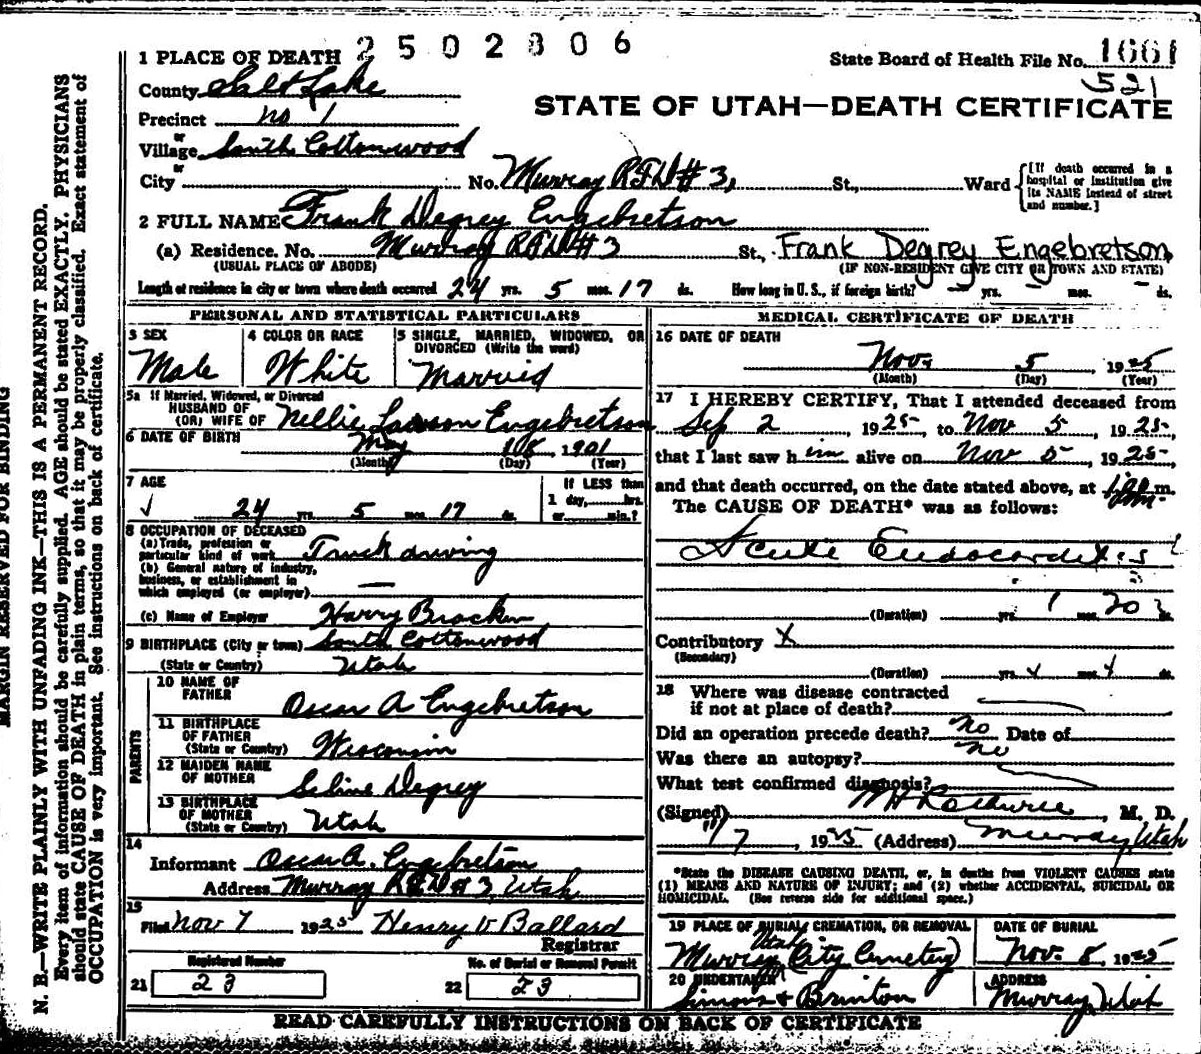 MARGIN RESERVED FOR BINDING
N. B.—WRITE PLAINLY WITH UNFADING INK—THIS IS A PERMANENT RECORD.
Every item of information should be carefully supplied. AGE should be stated EXACTLY. PHYSICIANS
should state CAUSE OF DEATH in plain terms, so that it may be properly classified. Exact statement of
OCCUPATION is very important. See instructions on back of certificate.
1 PLACE OF DEATH 2502806
State Board of Health File No. 1661
521
County Salt Lake
STATE OF UTAH—DEATH CERTIFICATE
Precinct no 1
or
Village South Cottonwood
or
City No. Murray RFD #3, St., Ward
[If death occurred in a hospital or institution give its NAME instead of street and number.]
2 FULL NAME Frank Degrey Engebretson
(a) Residence. No. Murray RFD #3 St., Frank Degrey Engebretson
(USUAL PLACE OF ABODE) (IF NON-RESIDENT GIVE CITY OR TOWN AND STATE)
Length of residence in city or town where death occurred 24 yrs. 5 mos. 17 ds. How long in U. S., if foreign birth? — yrs. — mos. — ds.
PERSONAL AND STATISTICAL PARTICULARS
3 SEX
Male
4 COLOR OR RACE
White
5 SINGLE, MARRIED, WIDOWED, OR
DIVORCED (Write the word)
Married
5a If Married, Widowed, or Divorced
HUSBAND OF
(OR) WIFE OF Nellie Lawson Engebretson
6 DATE OF BIRTH May 18, 1901
(Month) (Day) (Year)
7 AGE
24 yrs. 5 mos. 17 ds.
If LESS than
1 day, hrs.
or min.?
8 OCCUPATION OF DECEASED
(a) Trade, profession or
particular kind of work Truck driving
(b) General nature of industry,
business, or establishment in
which employed (or employer) —
(c) Name of Employer Harry Bracken
9 BIRTHPLACE (City or town) South Cottonwood
(State or Country) Utah
PARENTS
10 NAME OF
FATHER Oscar A Engebretson
11 BIRTHPLACE
OF FATHER
(State or Country) Wisconsin
12 MAIDEN NAME
OF MOTHER Seline Degrey
13 BIRTHPLACE
OF MOTHER
(State or Country) Utah
14
Informant Oscar A. Engebretson
Address Murray RFD #3, Utah
15
Filed Nov 7 1925 Henry V Ballard
Registrar
Registered Number
21 23
No. of Burial or Removal Permit
22 23
MEDICAL CERTIFICATE OF DEATH
16 DATE OF DEATH
Nov. 5 1925
(Month) (Day) (Year)
17 I HEREBY CERTIFY, That I attended deceased from
Sep 2, 1925, to Nov 5, 1925,
that I last saw him alive on Nov 5, 1925,
and that death occurred, on the date stated above, at m.
The CAUSE OF DEATH* was as follows:
Acute Endocarditis
(Duration) yrs. 1 mos. 20
Contributory X
(Secondary)
(Duration) yrs. x mos. x ds.
18 Where was disease contracted
if not at place of death?
Did an operation precede death? No Date of
Was there an autopsy? No
What test confirmed diagnosis?
(Signed) , M. D.
11/7, 1925 (Address) Murray, Utah
*State the DISEASE CAUSING DEATH, or, in deaths from VIOLENT CAUSES state
(1) MEANS AND NATURE OF INJURY; and (2) whether ACCIDENTAL, SUICIDAL OR
HOMICIDAL. (See reverse side for additional space.)
19 PLACE OF BURIAL, CREMATION, OR REMOVAL
Utah
Murray City Cemetery
DATE OF BURIAL
Nov. 8, 1925
20 UNDERTAKER
Simons & Brinton
ADDRESS
Murray, Utah
READ CAREFULLY INSTRUCTIONS ON BACK OF CERTIFICATE